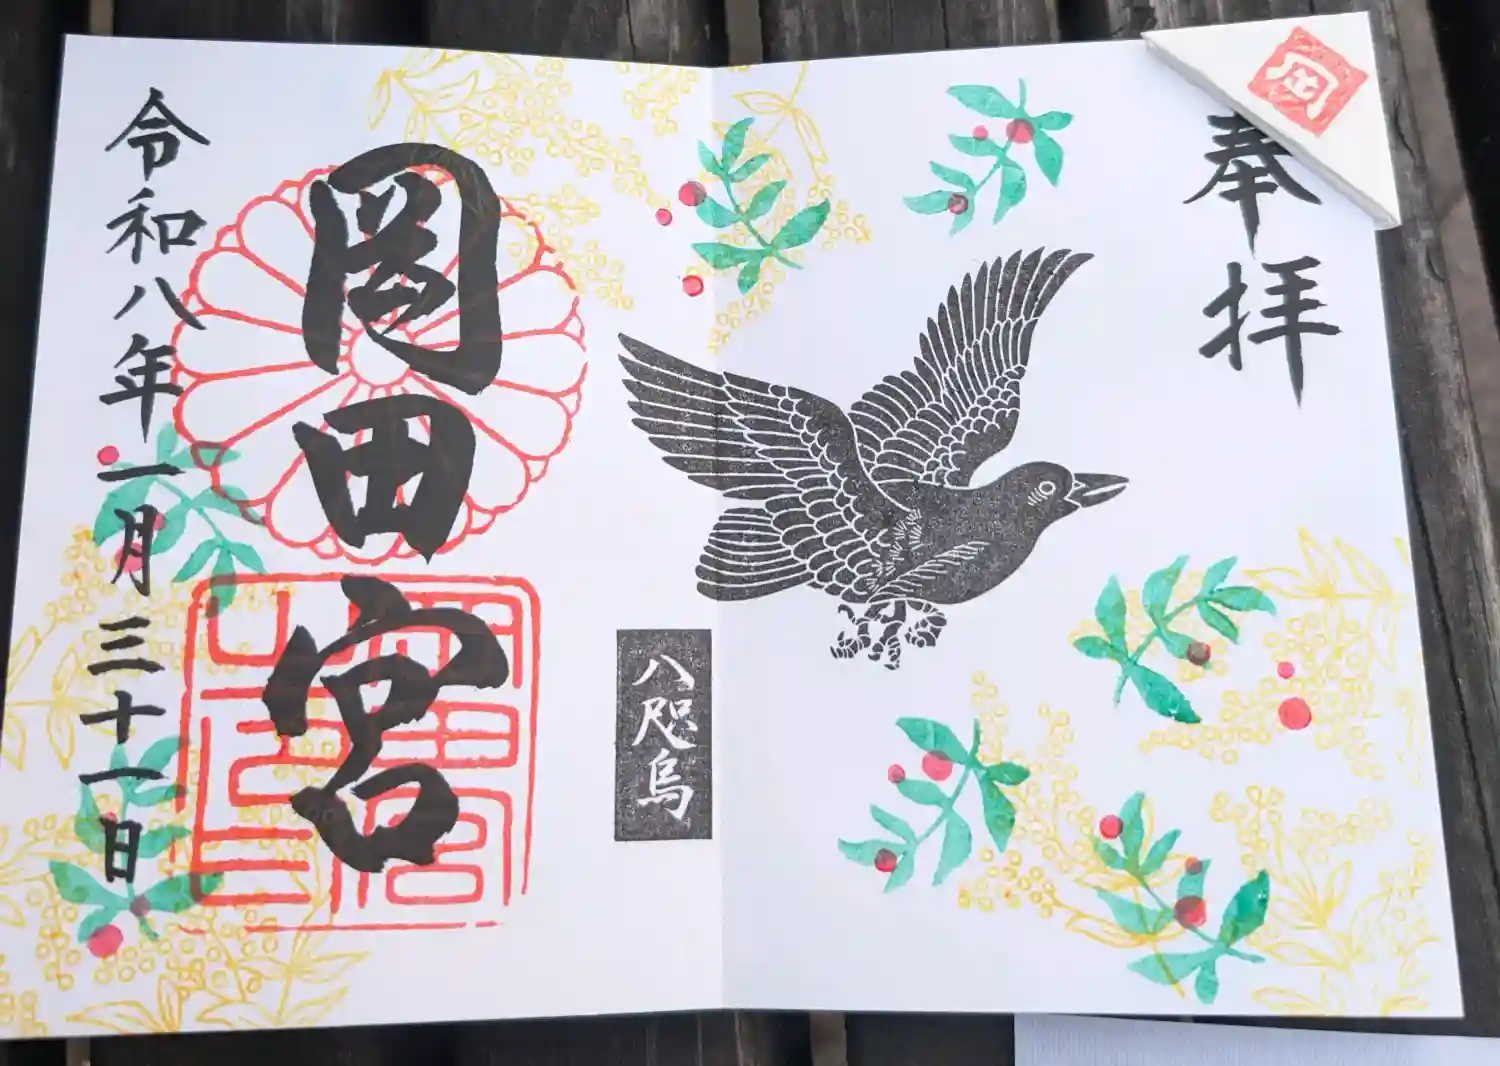 奉拝
八咫烏
岡田宮
令和八年一月三十一日
岡